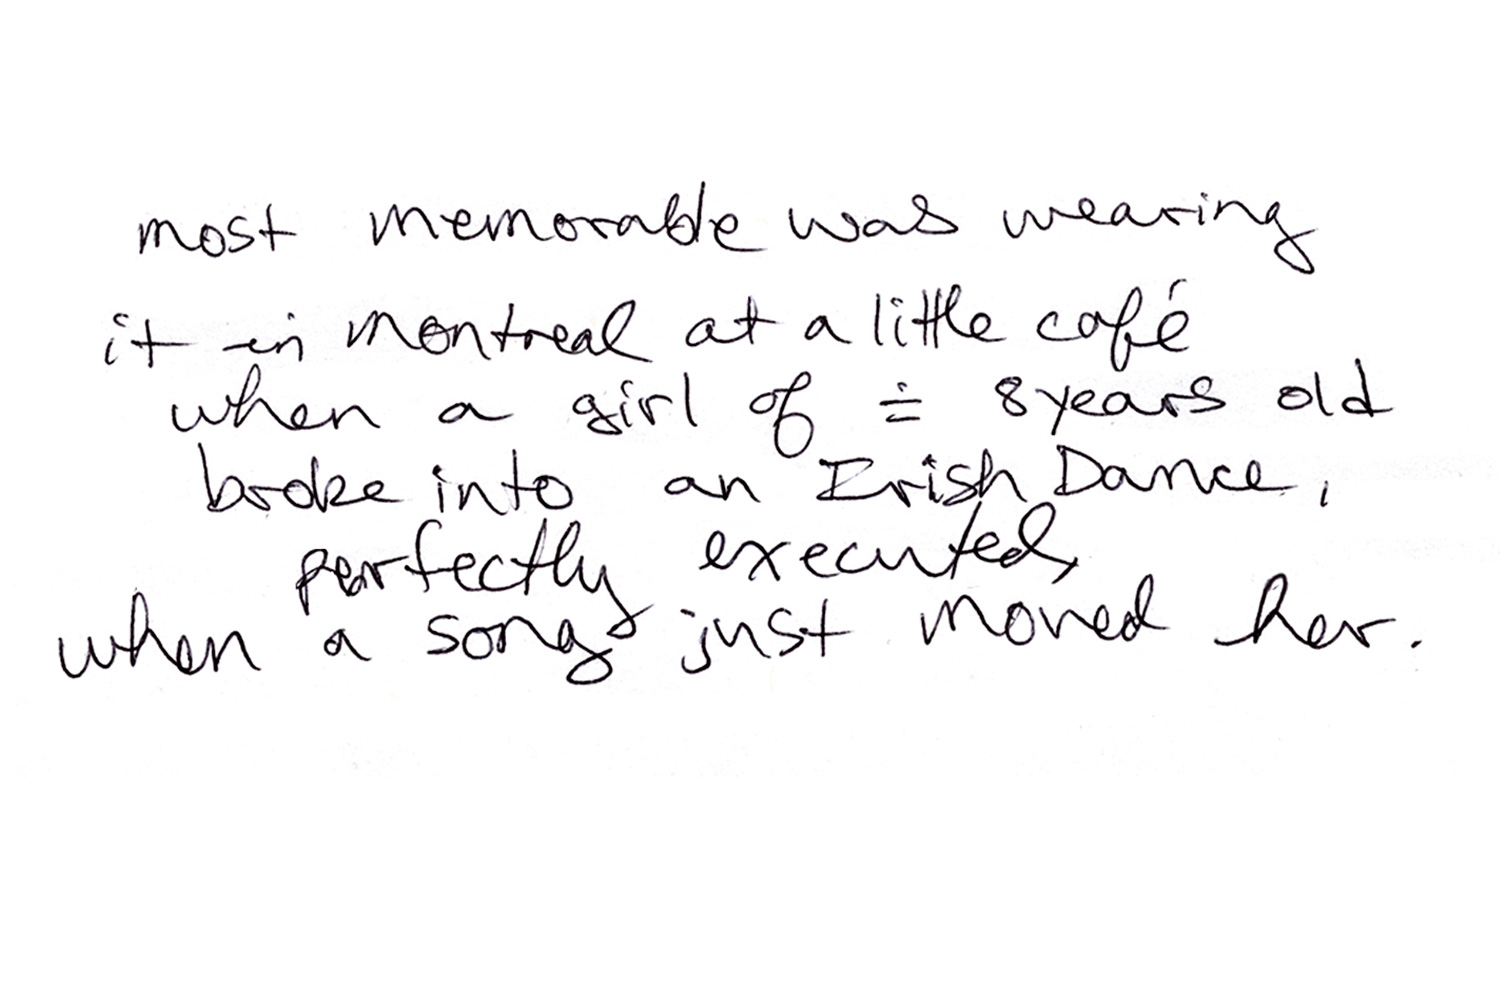 most memorable was wearing
it in montreal at a little café
when a girl of ≐ 8 years old
broke into an Irish Dance,
perfectly executed,
when a song just moved her.